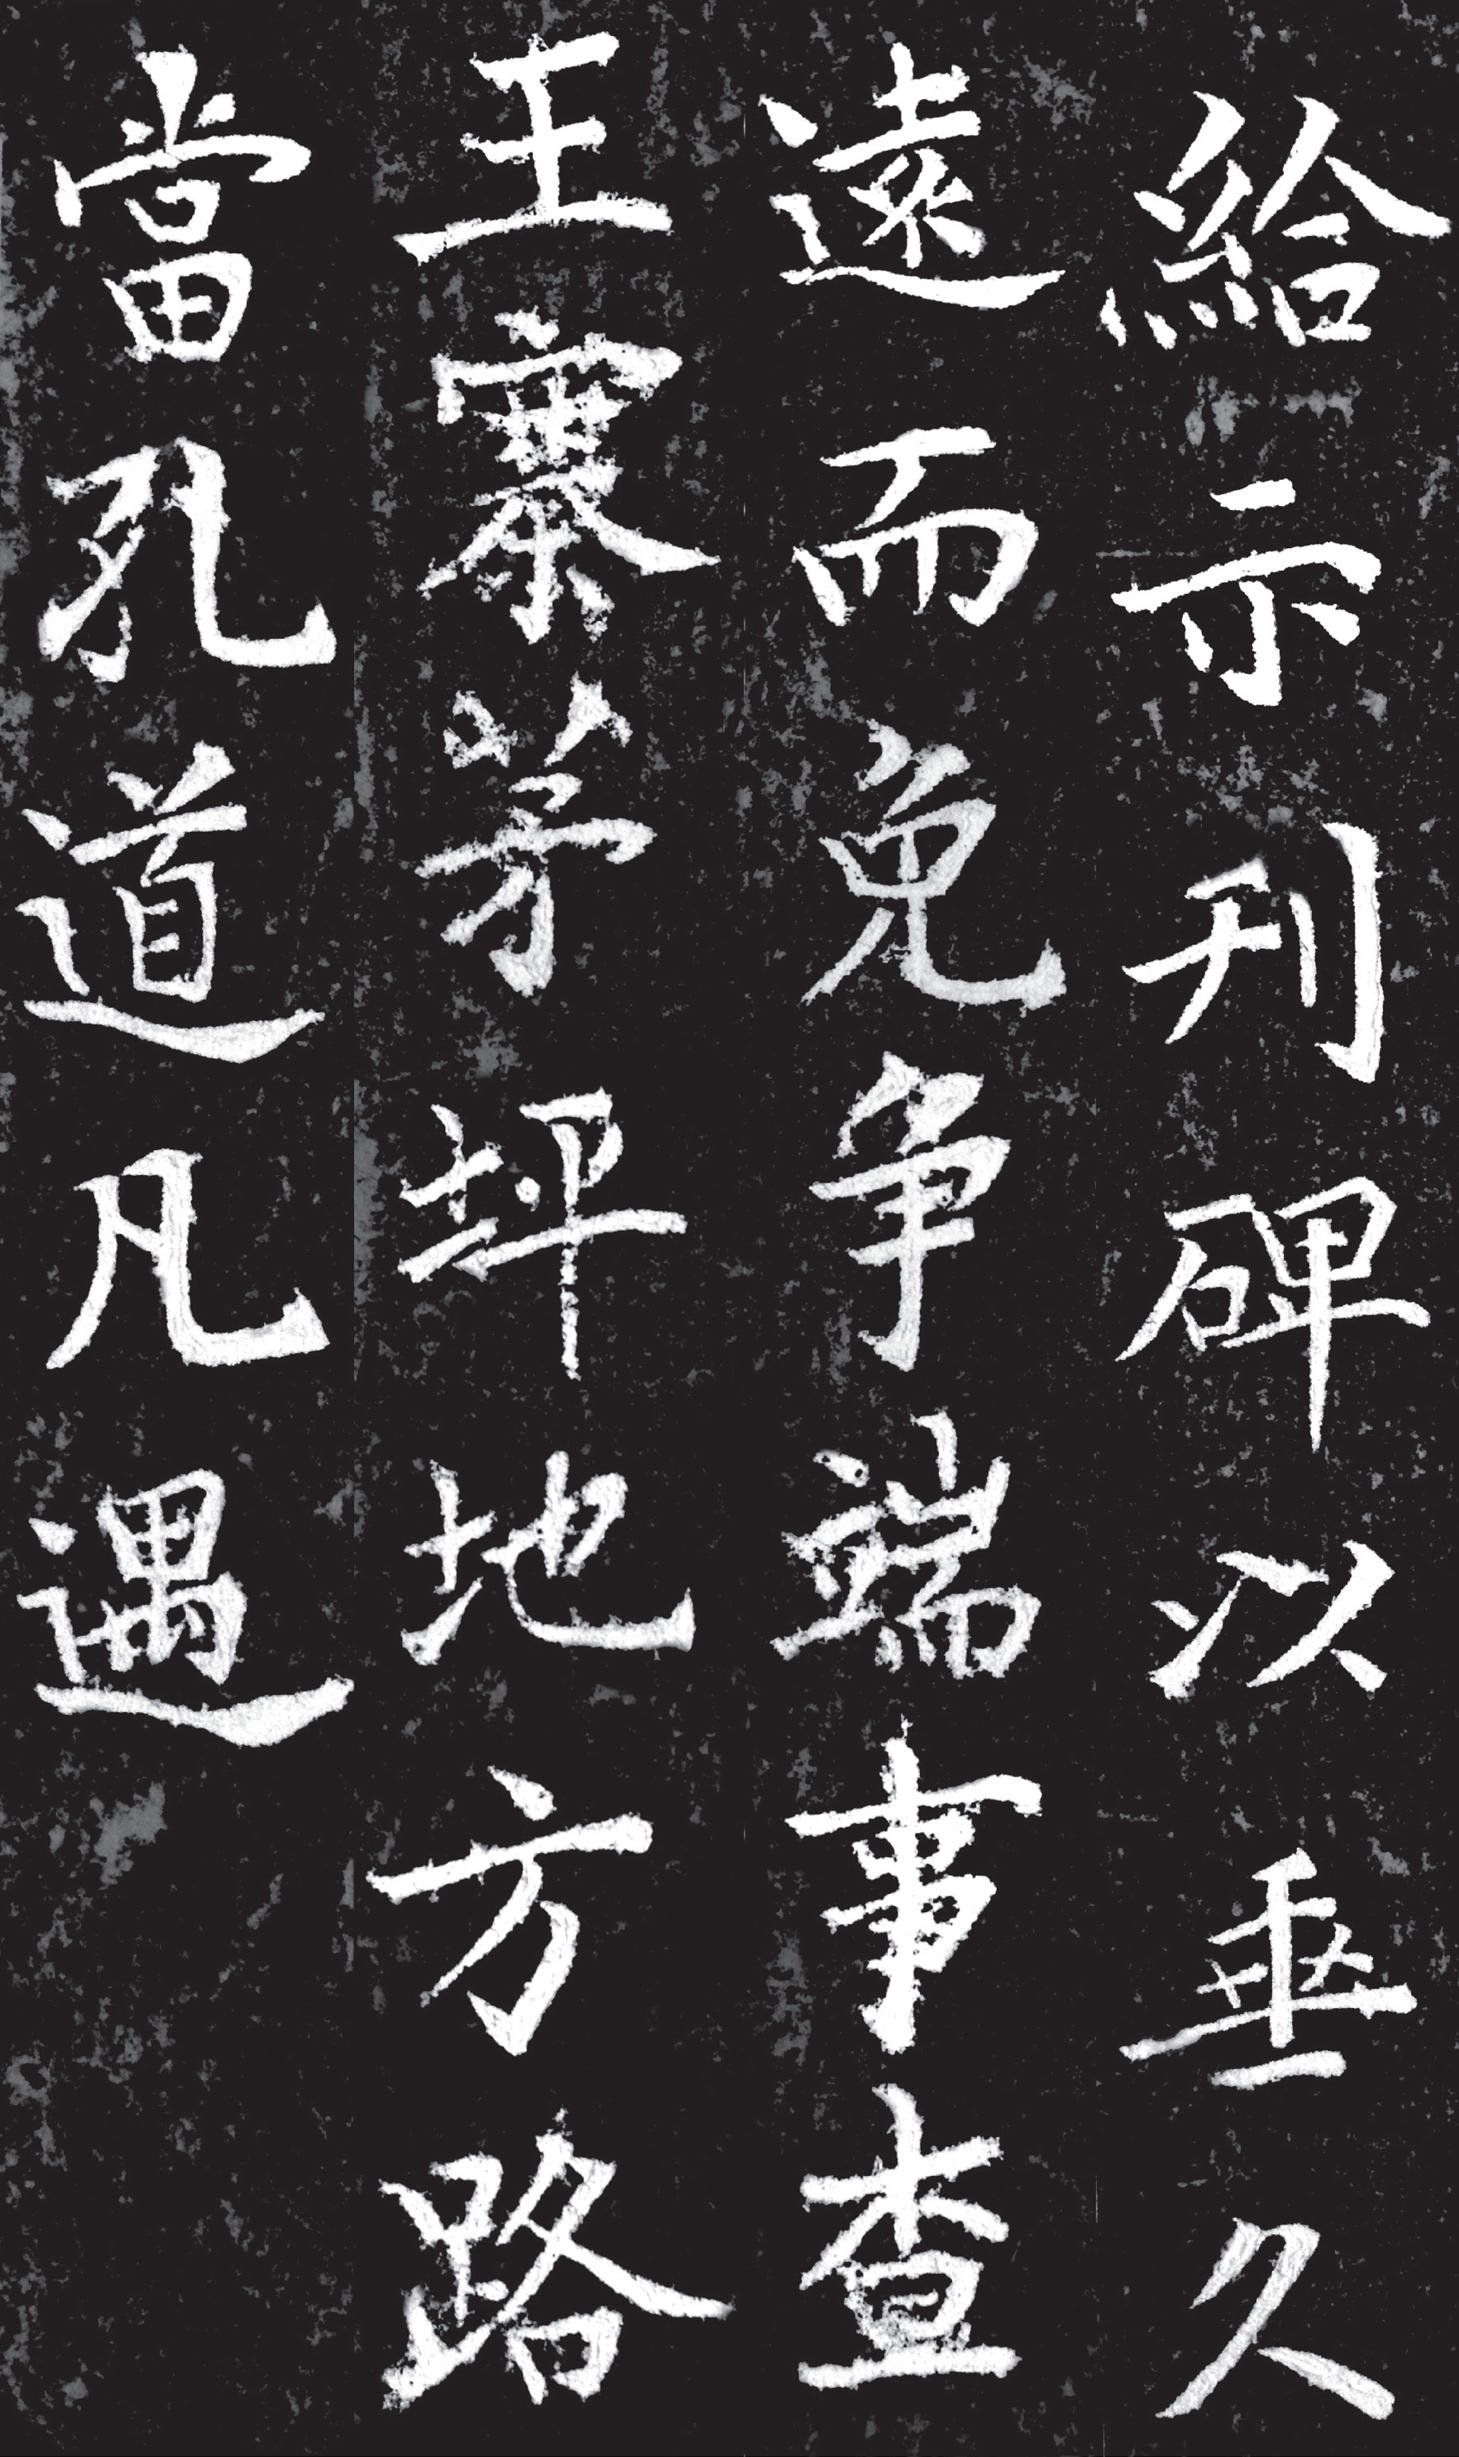 給示刊碑以垂久
遠而免争端事查
王寨茅坪地方路
當孔道凡遇